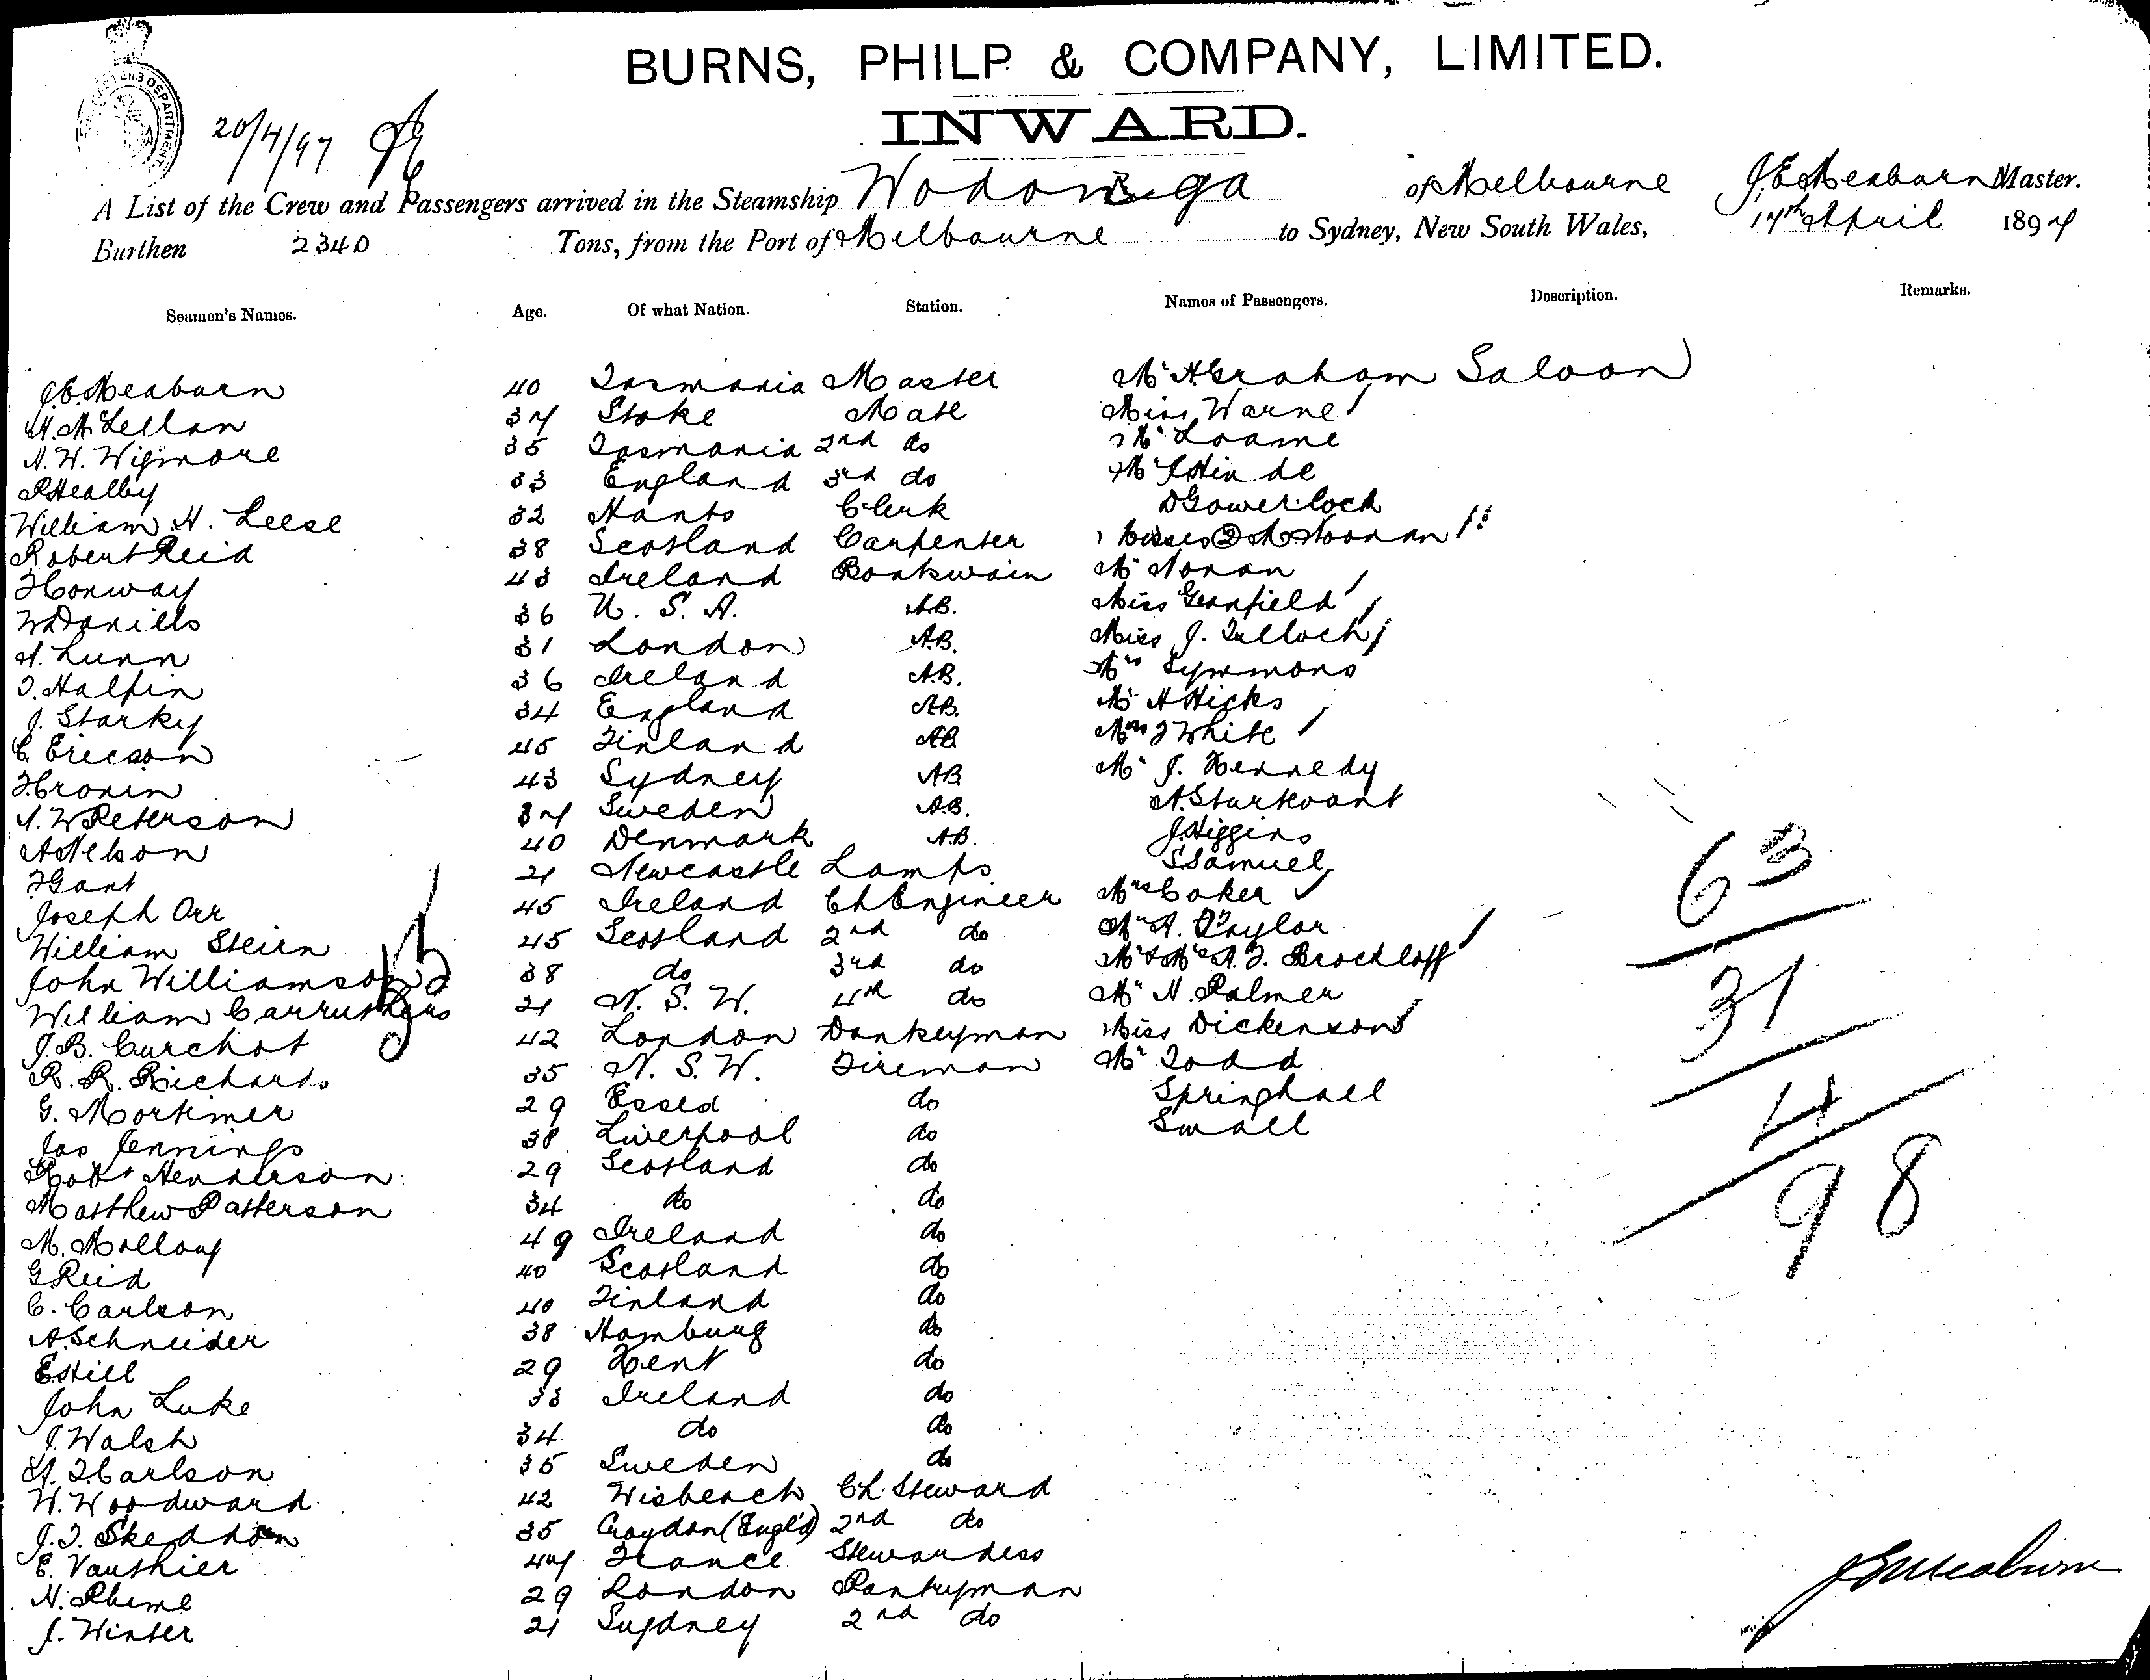 BURNS, PHILP & COMPANY, LIMITED.
INWARD.
20/4/97
A List of the Crew and Passengers arrived in the Steamship Wodonga of Melbourne J.E. Meaburn Master.
Burthen 2340 Tons, from the Port of Melbourne to Sydney, New South Wales, 17th April 1897
Seamen's Names. Age. Of what Nation. Station. Names of Passengers. Description. Remarks.
J.E. Meaburn 40 Tasmania Master Mr Abraham Saloon
McLellan 37 Stoke Mate Miss Warne
Wigmore 35 Tasmania 2nd do Mr Loame
Healby 33 England 3rd do Mr
William H. Leese 32 Hants Clerk D Gowerlock
Robert Reid 38 Scotland Carpenter Misses 2 Noonan
Conway 43 Ireland Boatswain Mr Noran
W Daniells 36 U. S. A. A.B. Miss Granfield
Lunn 31 London A.B. Miss J. Tulloch
T. Halpin 36 Ireland A.B. Symmons
J. Starky 34 England A.B. Mr H Hicks
C Ericson 45 Finland AB Mrs J White
Cronin 43 Sydney AB Mr J. Kennedy
Peterson 37 Sweden A.B. A. Sturtevant
A Nelson 40 Denmark A.B. J Higgins
Gant 21 Newcastle Lamps S Samuel
Joseph Orr 45 Ireland Ch Engineer Mrs Coker
William Steirn 45 Scotland 2nd do Mr A. Taylor
John Williamson 38 do 3rd do Mr & Mrs A. J. Brockloff
William Carruthers 21 N. S. W. 4th do Mr H. Palmer
J.B. Curchot 42 London Donkeyman Miss Dickenson
R. R. Richards 35 N. S. W. Fireman Mr Todd
G. Mortimer 29 Essex do Springhall
Jas Jennings 38 Liverpool do Small
Robt Henderson 29 Scotland do
Matthew Patterson 34 do do
M. Molloy 49 Ireland do
G Reid 40 Scotland do
C. Carlson 40 Finland do
A Schneider 38 Hamburg do
E Hill 29 Kent do
John Luke 33 Ireland do
J. Walsh 34 do do
Carlson 35 Sweden do
W. Woodward 42 Wisbeach Ch Steward
J. T. Skeddon 35 Croydon (Engl'd) 2nd do
E. Vauthier 47 France Stewardess
H. Phime 29 London Pantryman
J. Winter 21 Sydney 2nd do
63
31
4
98
J E Meaburn